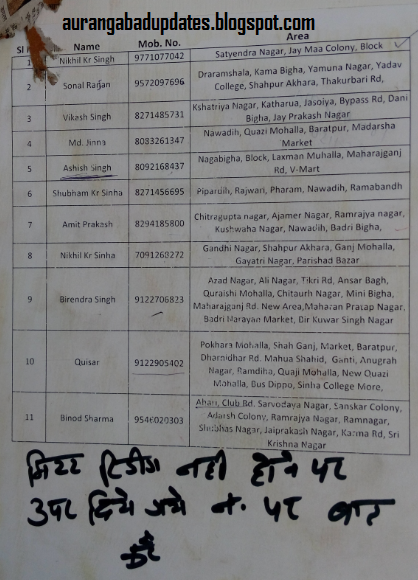 aurangabadupdates.blogspot.com
Sl Name Mob. No. Area
1 Nikhil Kr Singh 9771077042 Satyendra Nagar, Jay Maa Colony, Block
2 Sonal Rajan 9572097696 Draramshala, Kama Bigha, Yamuna Nagar, Yadav
College, Shahpur Akhara, Thakurbari Rd,
3 Vikash Singh 8271485731 Kshatriya Nagar, Katharua, Jasoiya, Bypass Rd, Dani
Bigha, Jay Prakash Nagar
4 Md. Jinna 8083261347 Nawadih, Quazi Mohalla, Baratpur, Madarsha
Market
5 Ashish Singh 8092168437 Nagabigha, Block, Laxman Muhalla, Maharajganj
Rd, V-Mart
6 Shubham Kr Sinha 8271456695 Pipardih, Rajwari, Pharam, Nawadih, Ramabandh
7 Amit Prakash 8294185800 Chitragupta nagar, Ajamer Nagar, Ramrajya nagar,
Kushwaha Nagar, Nawadih, Badri Bigha,
8 Nikhil Kr Sinha 7091269272 Gandhi Nagar, Shahpur Akhara, Ganj Mohalla,
Gayatri Nagar, Parishad Bazar
9 Birendra Singh 9122706823 Azad Nagar, Ali Nagar, Tikri Rd, Ansar Bagh,
Quraishi Mohalla, Chitaurh Nagar, Mini Bigha,
Maharajganj Rd. New Area, Maharan Pratap Nagar,
Badri Narayan Market, Dir Kuwar Singh Nagar
10 Quisar 9122905402 Pokhara Mohalla, Shah Ganj, Market, Baratpur,
Dharnidhar Rd. Mahua Shahid, Ganti, Anugrah
Nagar, Ramdiha, Quaji Mohalla, New Quazi
Mohalla, Bus Dippo, Sinha College More,
11 Binod Sharma 9546020303 Ahari, Club Rd. Sarvodaya Nagar, Sanskar Colony,
Adarsh Colony, Ramrajya Nagar, Ramnagar,
Shubhas Nagar, Jaiprakash Nagar, Karma Rd, Sri
Krishna Nagar
मिटर रिडींग नही होने पर
उपर दिये गये नं. पर बात
करें